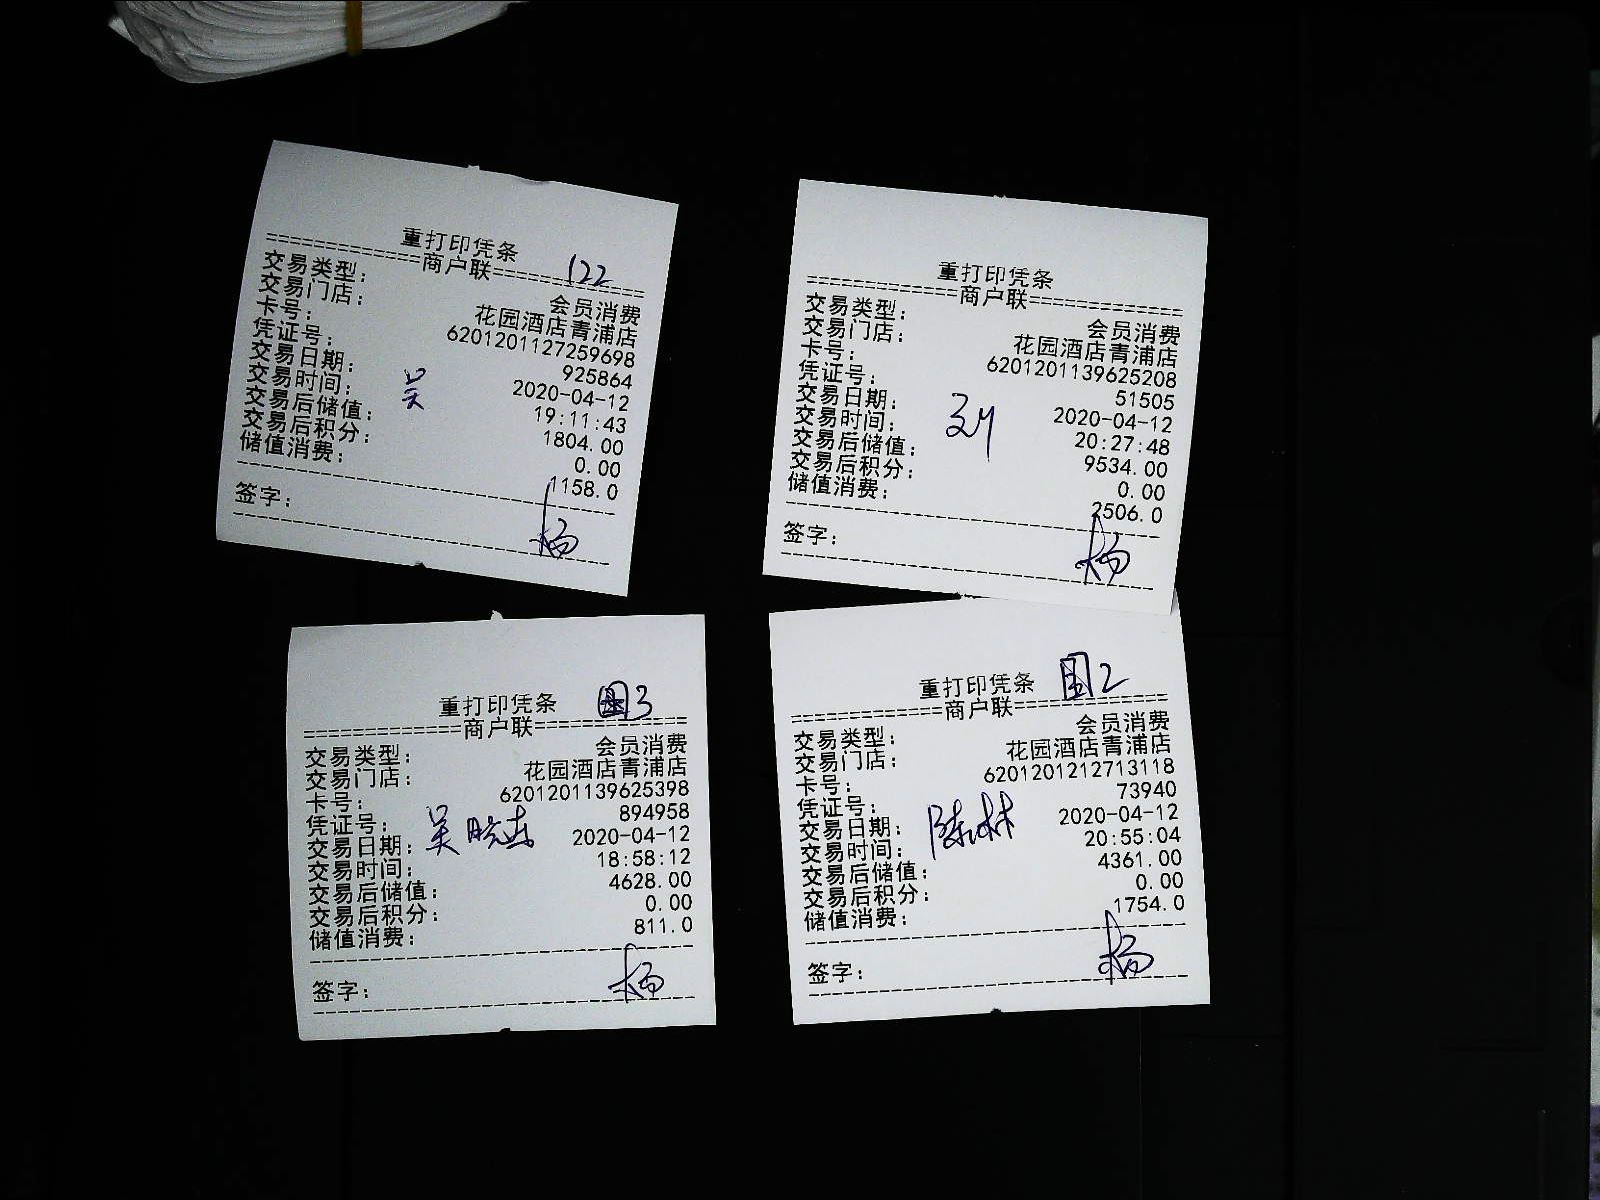 重打印凭条
122
============商户联============
交易类型: 会员消费
交易门店: 花园酒店青浦店
卡号: 6201201127259698
凭证号: 925864
交易日期: 2020-04-12
交易时间: 19:11:43
吴
交易后储值: 1804.00
交易后积分: 0.00
储值消费: 1158.0
签字:
杨
重打印凭条
============商户联============
交易类型: 会员消费
交易门店: 花园酒店青浦店
卡号: 6201201139625208
凭证号: 51505
交易日期: 2020-04-12
交易时间: 20:27:48
交易后储值: 9534.00
交易后积分: 0.00
储值消费: 2506.0
签字:
杨
重打印凭条
3
============商户联============
交易类型: 会员消费
交易门店: 花园酒店青浦店
卡号: 6201201139625398
凭证号: 894958
交易日期: 2020-04-12
吴晓
交易时间: 18:58:12
交易后储值: 4628.00
交易后积分: 0.00
储值消费: 811.0
签字:
杨
重打印凭条
2
============商户联============
交易类型: 会员消费
交易门店: 花园酒店青浦店
卡号: 6201201212713118
凭证号: 73940
交易日期: 2020-04-12
陈林
交易时间: 20:55:04
交易后储值: 4361.00
交易后积分: 0.00
储值消费: 1754.0
签字:
杨